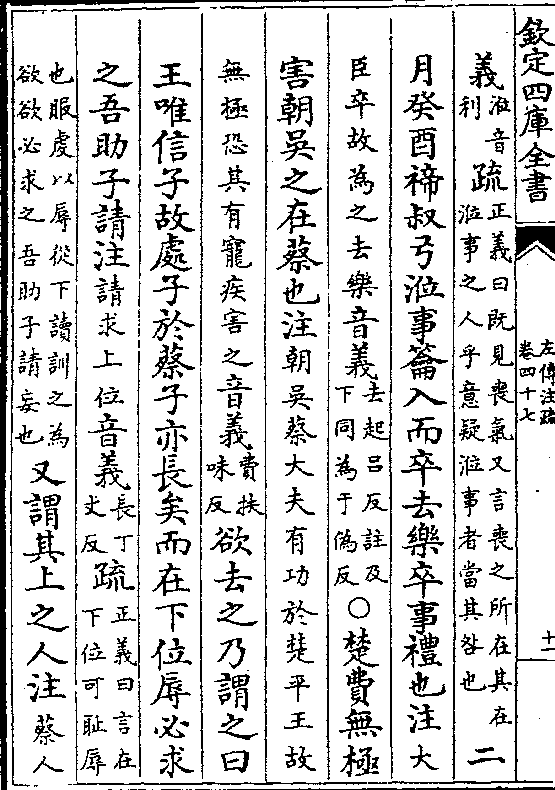 欽定四庫全書
左傳注疏
卷四十七
十一
義
涖音
利
疏
正義曰既見喪氣又言喪之所在其在
涖事之人乎意疑涖事者當其咎也
二
月癸酉禘叔弓涖事籥入而卒去樂卒事禮也注大
臣卒故為之去樂音義
去起吕反註及
下同為于偽反
○楚費無極
害朝吳之在蔡也注朝吳蔡大夫有功於楚平王故
無極恐其有寵疾害之音義
費扶
味反
欲去之乃謂之曰
王唯信子故處子於蔡子亦長矣而在下位辱必求
之吾助子請注請求上位音義
長丁
丈反
疏
正義曰言在
下位可恥辱
也服虔以辱從下讀訓之為
欲欲必求之吾助子請妄也
又謂其上之人注蔡人